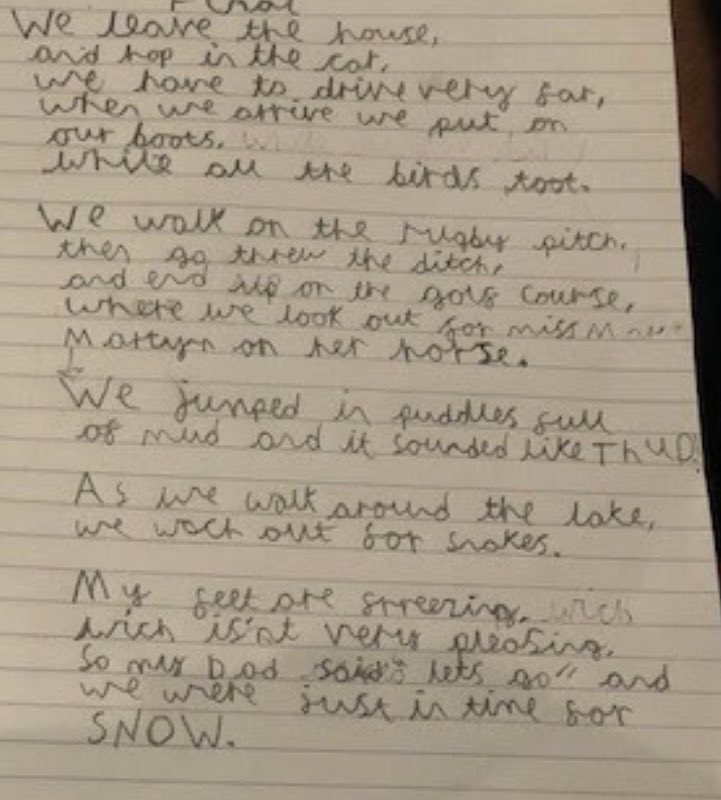 We leave the house,
and hop in the car,
we have to drive very far,
when we arrive we put on
our boots.
while all the birds toot.
We walk on the rugby pitch,
then go threw the ditch,
and end up on the golf course,
where we look out for miss
Martyn on her horse.
We jumped in puddles full
of mud and it sounded like ThUD!
As we walk around the lake,
we wach out for snakes.
My feet are freezing, wich
wich is'nt very pleasing.
So my Dad said "lets go" and
we were just in time for
SNOW.